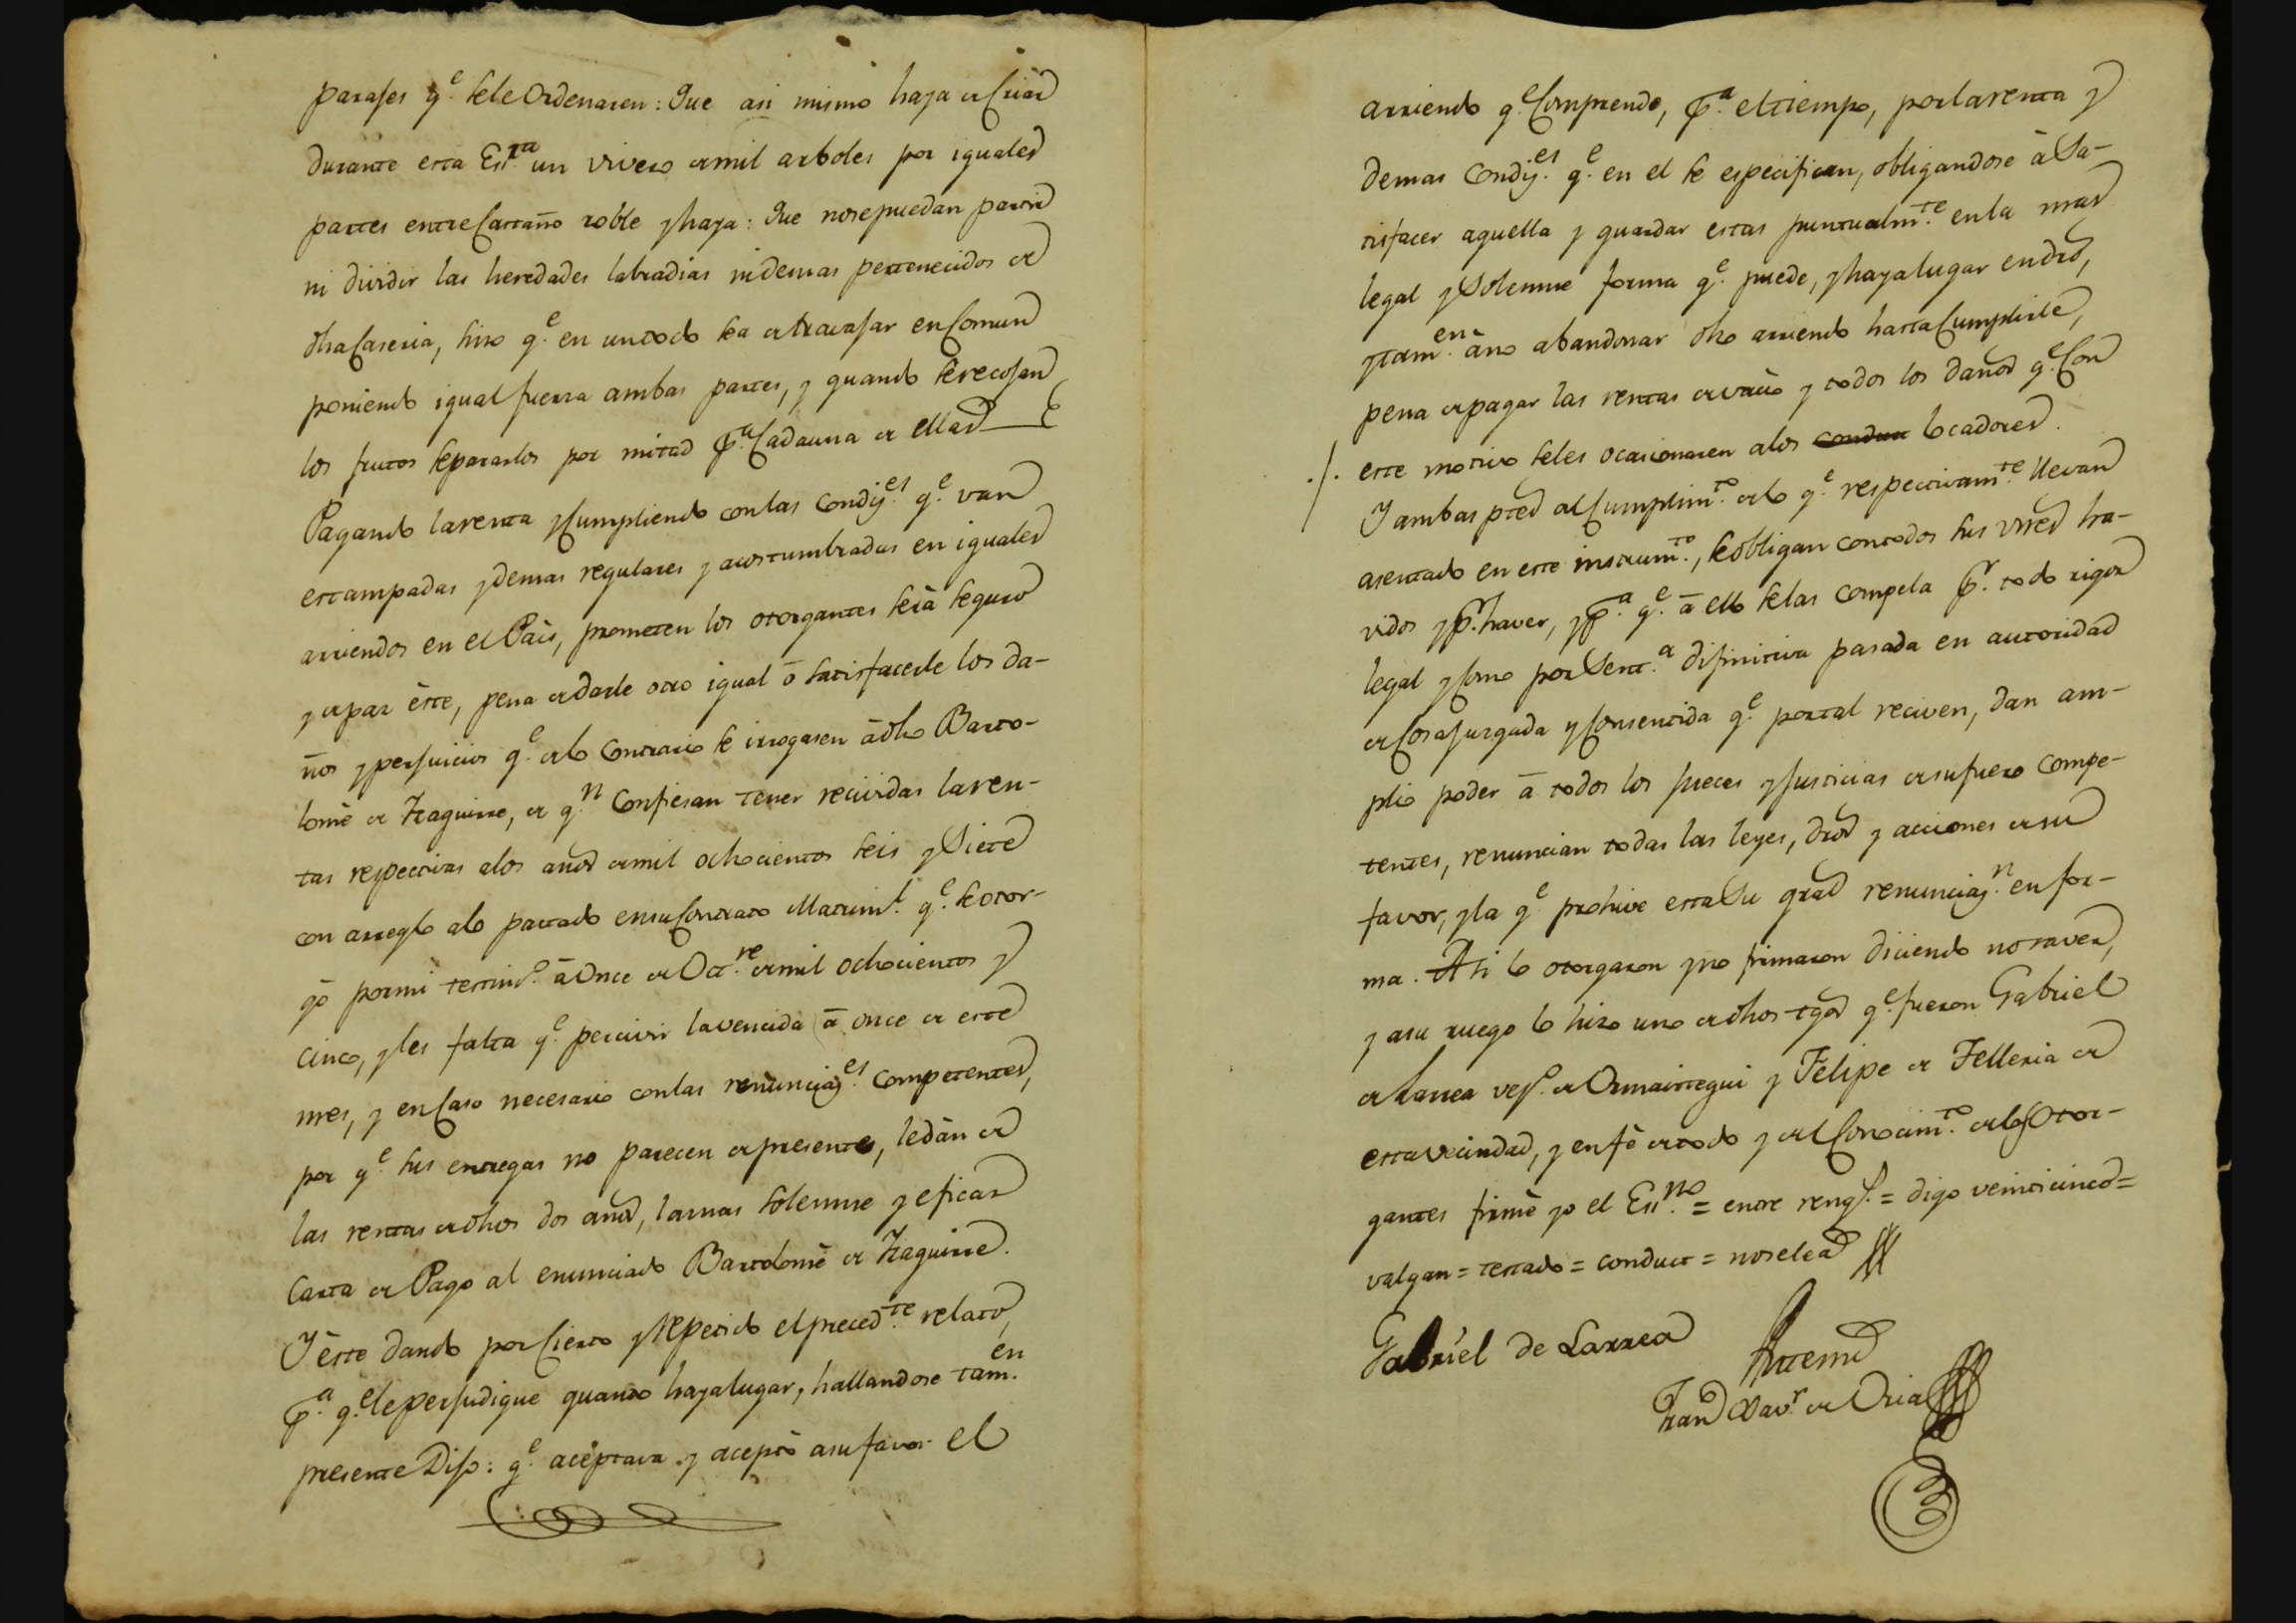 parajes q.e se le Ordenaren: Que asi mismo haya de Criar
durante esta Esrra un vivero de mil arboles por iguales
partes entre Castaño roble y haya: Que no se puedan partir
ni dividir las heredades labradias ni demas pertenecidos de
dha Caseria, sino q.e en un todo sea de travajar en Comun
poniendo igual fuerza ambas partes, y quando se recojan
los frutos separarlos por mitad p.a Cada una de ellas
Pagando la renta y Cumpliendo con las condiz.es q.e van
estampadas y demas regulares y acostumbradas en iguales
arriendos en el Païs, prometen los otorgantes serà seguro
y de paz èste, pena de darle otro igual ō satisfacerle los da-
ños y perjuicios q.e de lo Contrario se irrogasen ā dho Barto-
lomè de Yzaguirre, de q.n Confiesan tener recividas las ren-
tas respectivas a los años de mil ochocientos seis y Siete
con arreglo a lo pactado en su Contrato Matrim.l q.e se otor-
gō por mi testim.o ā Once de Oct.re de mil ochocientos y
cinco, y les falta q.e percivir la vencida ā once de este
mes, y en Caso necesario con las renunciaz.es competentes,
por q.e sus entregas no parecen de presente, le dàn de
las rentas de dhos dos años, la mas solemne y eficaz
Carta de Pago al enunciado Bartolomè de Yzaguirre.
Y èste dando por Cierto y repetido el preced.te relato,
p.a q.e le perjudique quando haya lugar, hallandose tam.en
presente Dijo: q.e aceptava y aceptò a su favor el
arriendo q.e Comprende, p.a el tiempo, por la renta y
demas Condiz.es q.e en el se especifican, obligandose à Sa-
tisfacer aquella y guardar estas puntualm.te en la mas
legal y Solemne forma q.e puede, y haya lugar en dro,
y tam.en à no abandonar dho arriendo hasta Cumplirle,
pena de pagar las rentas de vacio y todos los daños q.e Con
este motivo se les ocasionaren a los conduct locadores.
Y ambas ptes al Cumplim.to de lo q.e respectivam.te llevan
asentado en este instrum.to, se obligan con todos sus vnes ha-
vidos y p.r haver, y p.a q.e ā ello se las compela p.r todo rigor
legal y Como por Sent.a difinitiva pasada en autoridad
de Cosa juzgada y Consentida q.e por tal reciven, dan am-
plio poder ā todos los Jueces y Justicias de su fuero compe-
tentes, renuncian todas las leyes, dros y acciones de su
favor, y la q.e prohive esta Su gral renunciaz.n en for-
ma. Asi lo otorgaron y no firmaron diciendo no saver,
y a su ruego lo hizo uno de dhos tgos q.e fueron Gabriel
de Larrea vez.o de Ormaiztegui y Felipe de Telleria de
esta vecindad, y en fè de todo y del Conocim.to de los Otor-
gantes firmè yo el Ess.no = entre rengs. = digo veinticinco =
valgan = testado = conduct = no se lea
Gabriel de Larrea
Antemi
Fran.co Xav.r de Oria